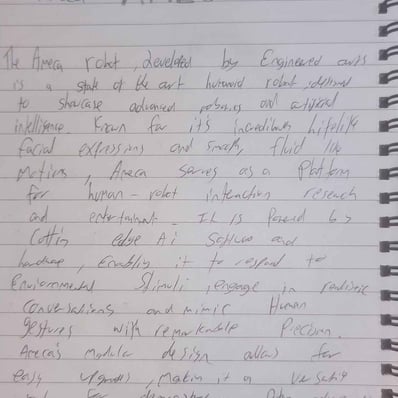 AMECA
The Ameca robot, develoted by Engineered arts
is a state of the art humanoid robot, designed
to showcase advanced robotics and artificial
intelligence. Known for it's incredibly lifelike
facial expressions and smooth, fluid like
Motions, Ameca serves as a Platform
for human-robot interaction research
and entertainment. It is Powered by
Cuttin edge Ai Software and
hardware, Enabling it to respond to
Environmental Stimuli, engage in realistic
conversations and mimic Human
gestures with remarkable Precision.
Ameca's modular design allows for
easy upgrades, makin it a versatile
for